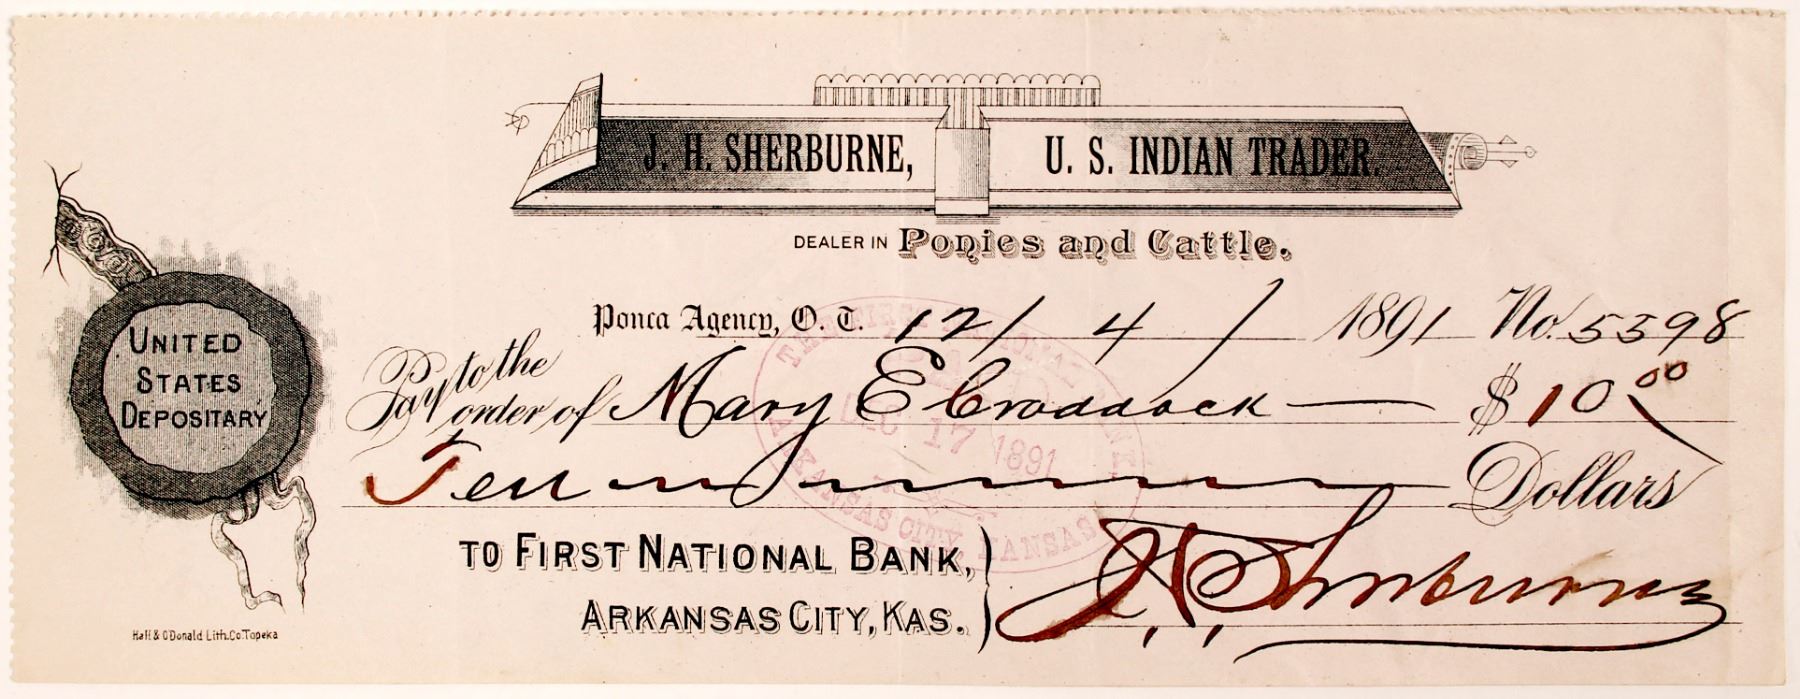 J. H. SHERBURNE, U. S. INDIAN TRADER.
DEALER IN Ponies and Cattle.
Ponca Agency, O. T. 12/4/1891 No. 5398
Pay to the order of Mary E Craddock $10 00
Ten Dollars
UNITED
STATES
DEPOSITARY
TO FIRST NATIONAL BANK,
ARKANSAS CITY, KAS.
J. H. Sherburne
Hall & O'Donald Lith. Co. Topeka
THE FIRST NATIONAL BANK
PAID
DEC 17 1891
ARKANSAS CITY, KANSAS